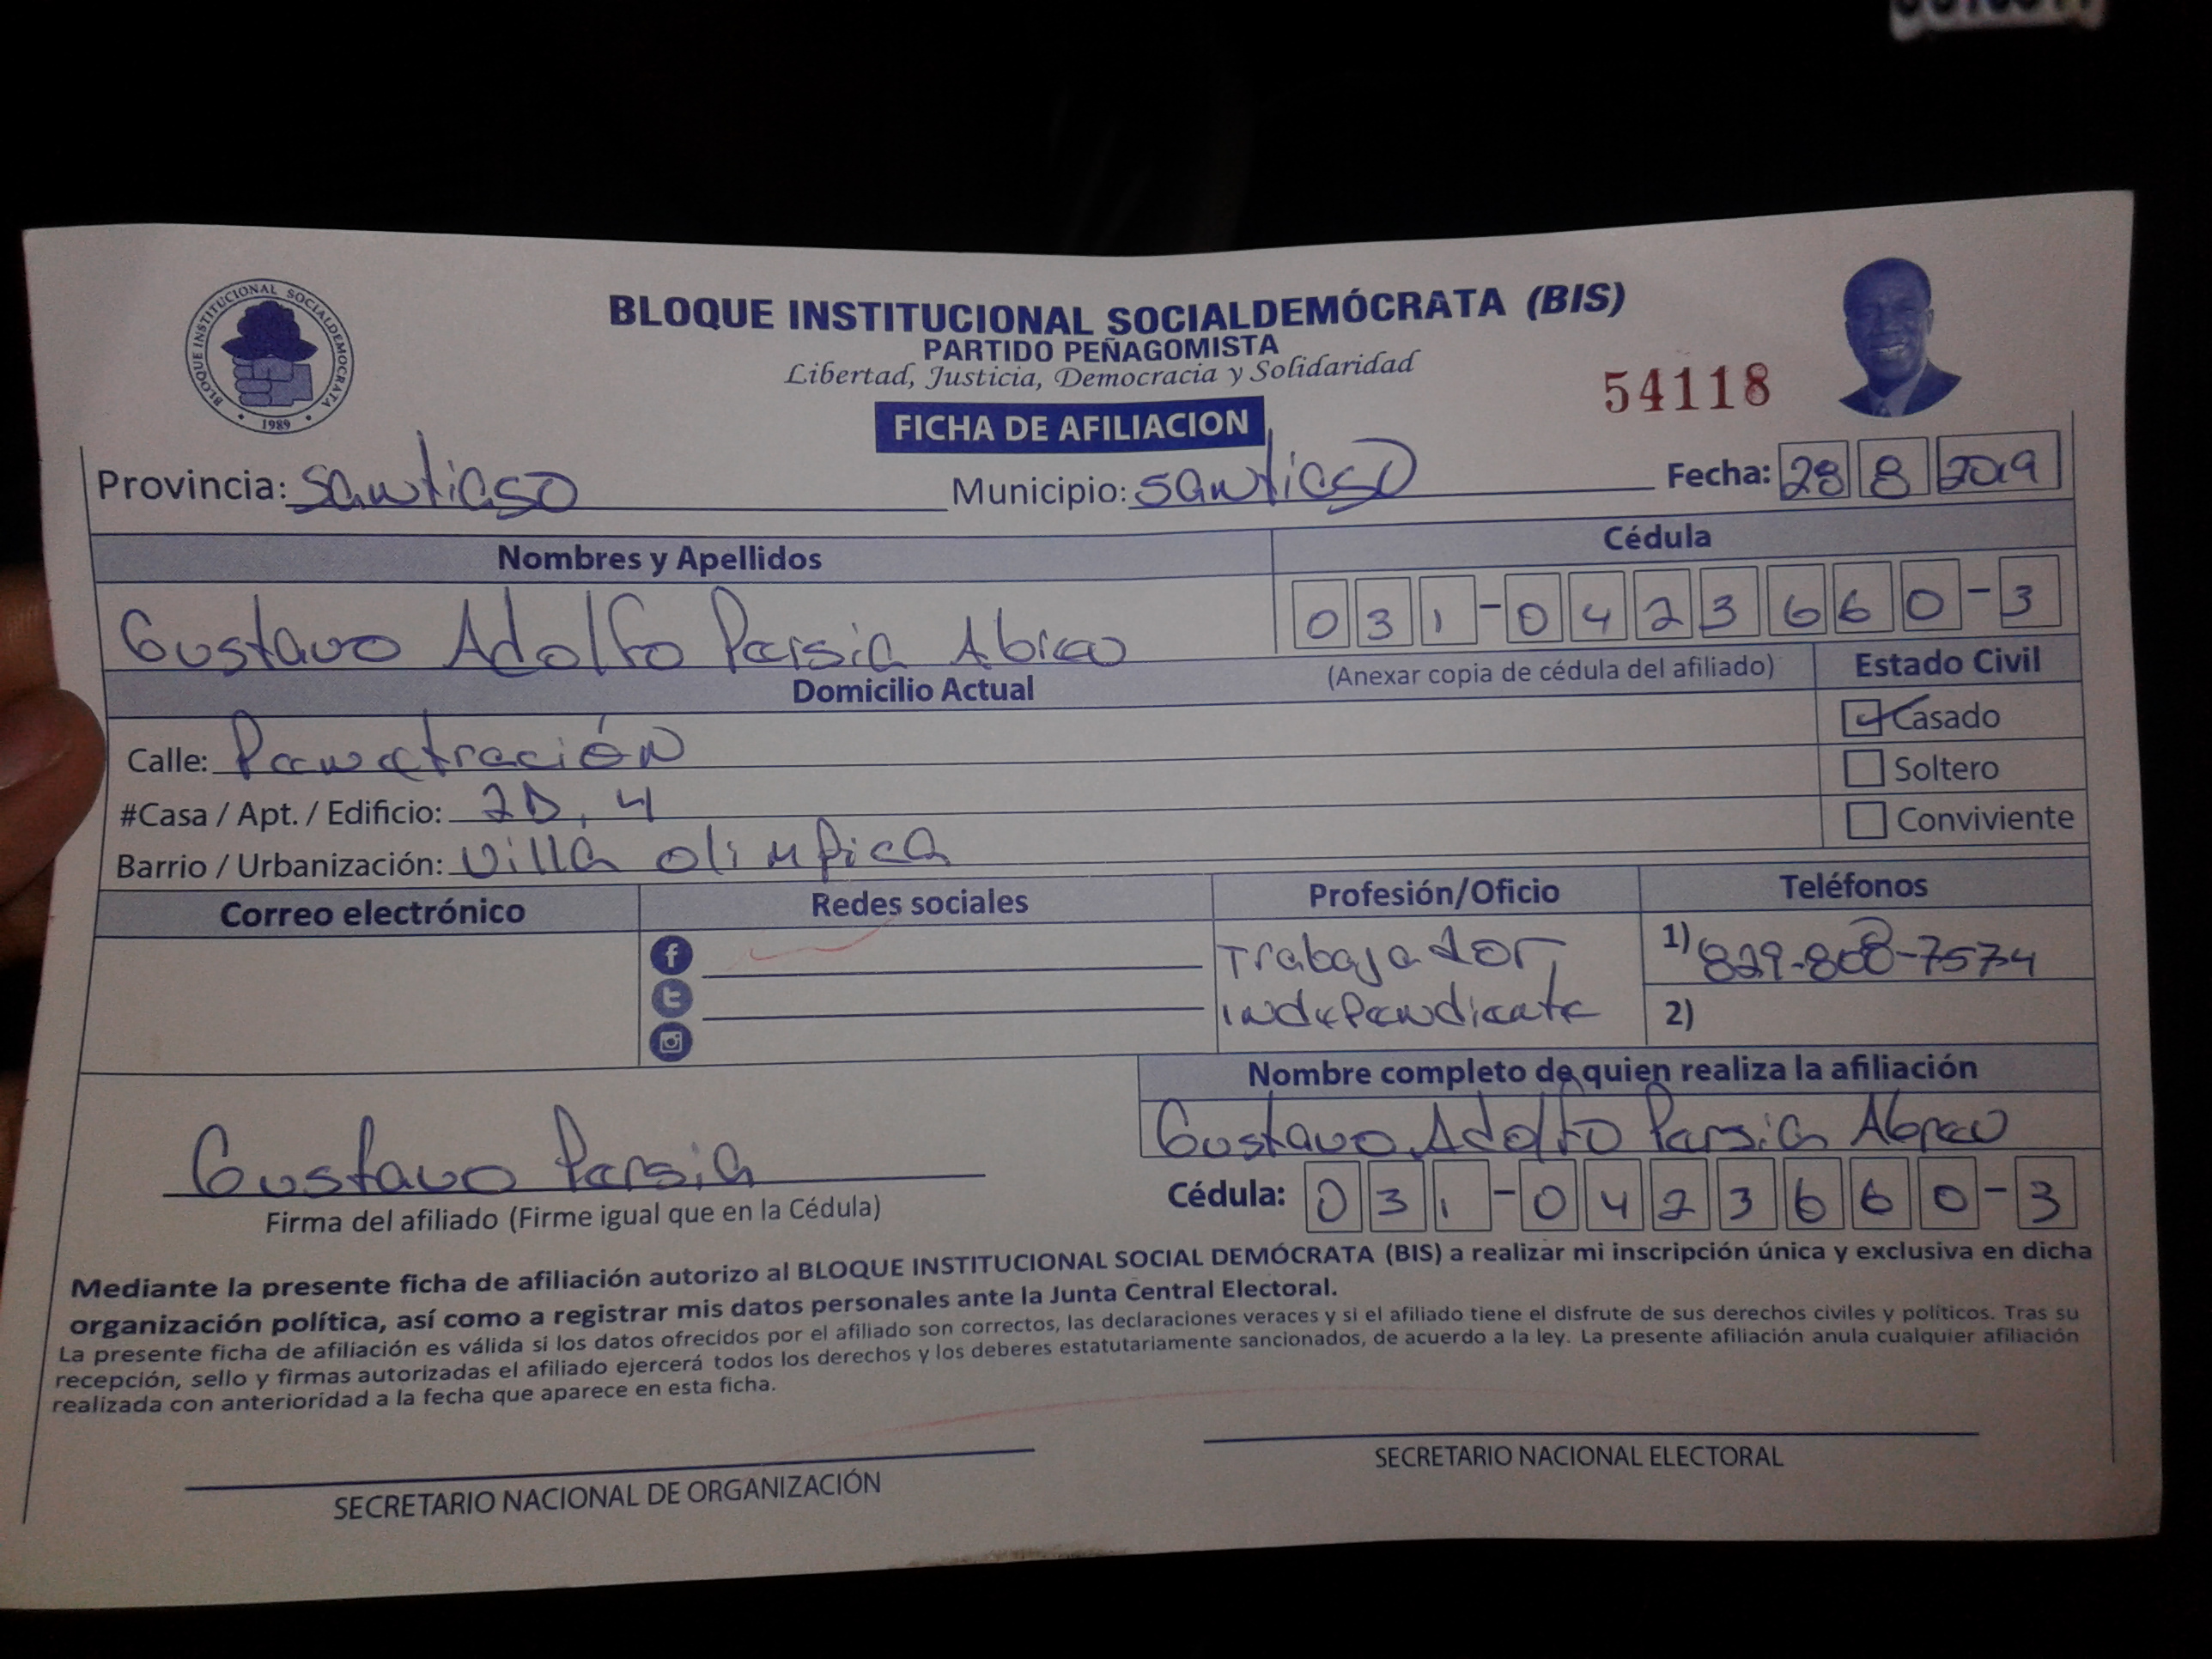 BLOQUE INSTITUCIONAL SOCIALDEMOCRATA
1989
BLOQUE INSTITUCIONAL SOCIALDEMÓCRATA (BIS)
PARTIDO PEÑAGOMISTA
Libertad, Justicia, Democracia y Solidaridad
54118
FICHA DE AFILIACION
Provincia: Santiago Municipio: Santiago Fecha: 28 8 2019
Nombres y Apellidos Cédula
Gustavo Adolfo Persia Abreu 031-0423660-3
(Anexar copia de cédula del afiliado) Estado Civil
Domicilio Actual
Casado
Calle: Penetración
Soltero
#Casa / Apt. / Edificio: 2D, 4
Conviviente
Barrio / Urbanización: Villa olimpica
Correo electrónico Redes sociales Profesión/Oficio Teléfonos
Trabajador 1) 829-808-7574
independiente 2)
Nombre completo de quien realiza la afiliación
Gustavo Adolfo Persia Abreu
Gustavo Persia
Cédula: 031-0423660-3
Firma del afiliado (Firme igual que en la Cédula)
Mediante la presente ficha de afiliación autorizo al BLOQUE INSTITUCIONAL SOCIAL DEMÓCRATA (BIS) a realizar mi inscripción única y exclusiva en dicha
organización política, así como a registrar mis datos personales ante la Junta Central Electoral.
La presente ficha de afiliación es válida si los datos ofrecidos por el afiliado son correctos, las declaraciones veraces y si el afiliado tiene el disfrute de sus derechos civiles y políticos. Tras su
recepción, sello y firmas autorizadas el afiliado ejercerá todos los derechos y los deberes estatutariamente sancionados, de acuerdo a la ley. La presente afiliación anula cualquier afiliación
realizada con anterioridad a la fecha que aparece en esta ficha.
SECRETARIO NACIONAL DE ORGANIZACIÓN
SECRETARIO NACIONAL ELECTORAL